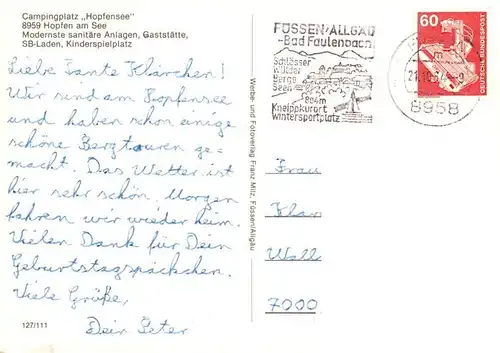 Campingplatz „Hopfensee"
8959 Hopfen am See
Modernste sanitäre Anlagen, Gaststätte,
SB-Laden, Kinderspielplatz
Liebe Tante Klärchen!
Wir sind am Hopfensee
und haben schon einige
schöne Bergtouren ge-
macht. Das Wetter ist
hier sehr schön. Morgen
fahren wir wieder heim.
Vielen Dank für Dein
Geburtstagspäckchen.
Viele Grüße,
Dein Peter
127/111
Werbe- und Fotoverlag Franz Milz, Füssen/Allgäu
FÜSSEN·ALLGÄU
-Bad Faulenbach-
Schlösser
wälder
Berge
Seen
804m
Kneippkurort
Wintersportplatz
8958
60
DEUTSCHE BUNDESPOST
Frau
Klar
Wall
7000